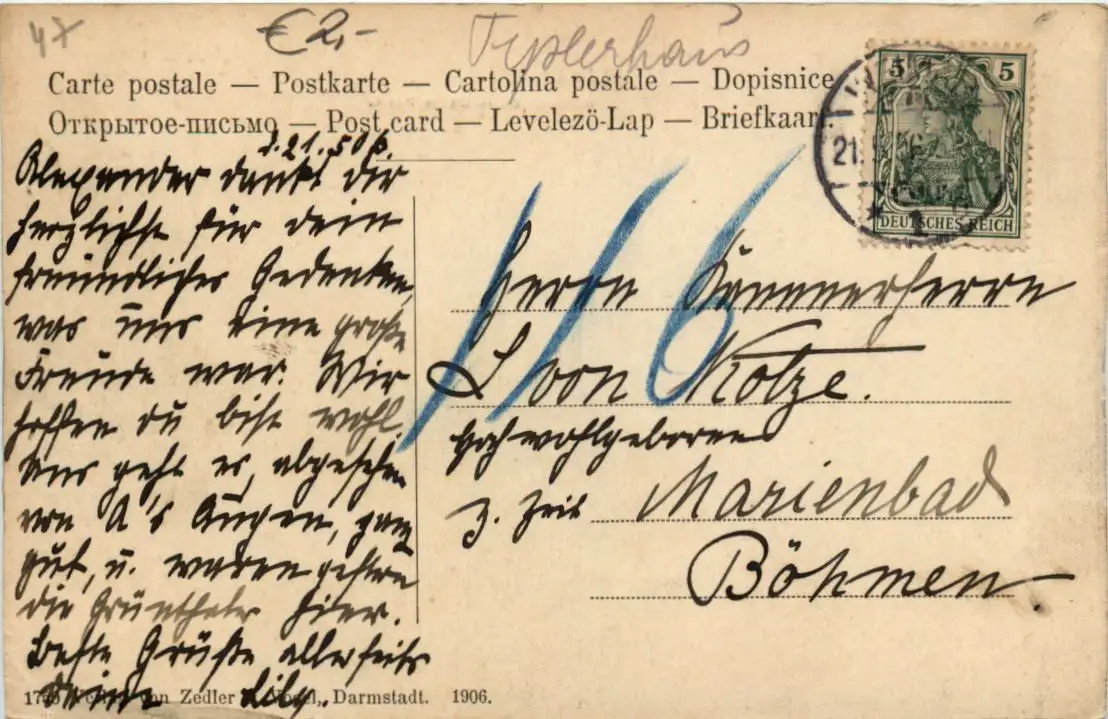 47
€ 2,-
Carte postale — Postkarte — Cartolina postale — Dopisnice
Открытое-письмо — Post card — Levelezö-Lap — Briefkaart.
5 5
21.
DEUTSCHES REICH
1
d. 21. 5 06
Alexander dankt Dir
herzlichst für dein
freundliches Gedenken,
was uns eine große
Freude war. Wir
hoffen du bist wohl.
Uns geht es, abgesehen
von A's Augen, ganz
gut, u. waren gestern
die Grünthals hier.
Beste Grüße allerseits
Deine Lily.
116
Herrn Kammerherrn
L von Kotze.
Hochwohlgeboren
z. Zeit Marienbad
Böhmen.
Zedler & Vogel, Darmstadt. 1906.